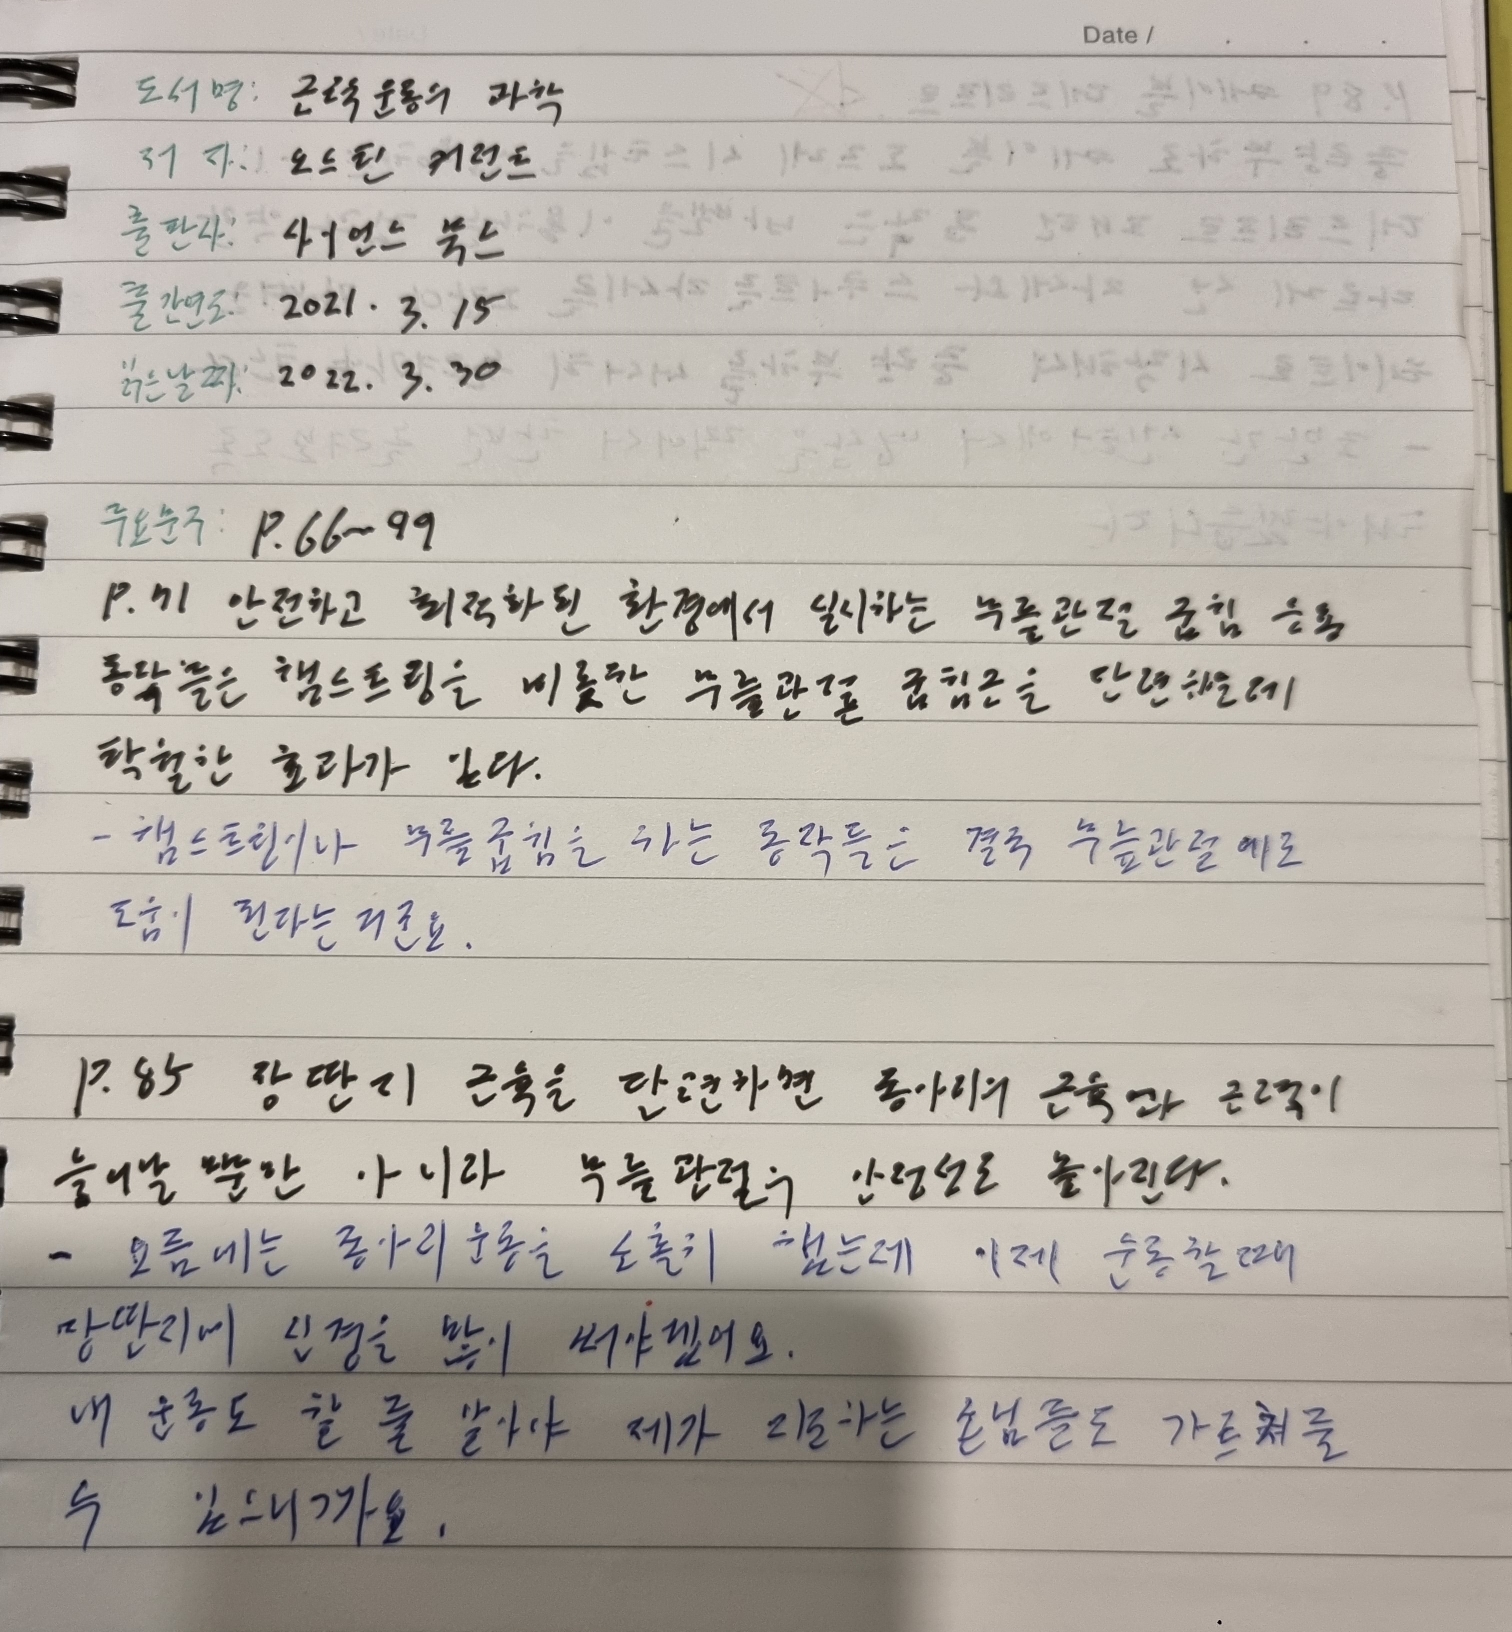 Date / . . .
도서명: 근력운동의 과학
저 자: 오스틴 커런트
출판사: 사이언스 북스
출간연도: 2021. 3. 15
읽은날짜: 2022. 3. 30
주요문구: P.66~99
P.71 안전하고 최적화된 환경에서 실시하는 무릎관절 굽힘 운동
동작들은 햄스트링을 비롯한 무릎관절 굽힘근을 단련하는데
탁월한 효과가 있다.
- 햄스트링이나 무릎굽힘을 하는 동작들은 결국 무릎관절에도
도움이 된다는거군요.
P.85 장딴지 근육을 단련하면 종아리의 근육과 근력이
늘어날 뿐만 아니라 무릎관절의 안정성도 높아진다.
- 요즘에는 종아리운동을 소홀히 했는데 이제 운동할때
장딴지에 신경을 많이 써야겠어요.
내 운동도 할 줄 알아야 제가 지도하는 손님들도 가르쳐줄
수 있으니까요.